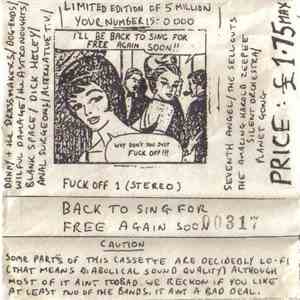 LIMITED EDITION OF 5 MILLION
YOUR NUMBER IS: 0000
I'LL BE BACK TO SING FOR
FREE AGAIN SOON!!
WHY DON'T YOU JUST
FUCK OFF!!!
FUCK OFF 1 (STEREO)
DANNY & THE DRESSMAKERS / DOG ENDS /
WILFUL DAMAGE / THE ASTRONAUHTS /
BLANK SPACE / DICK HELEY /
ANAL SURGEONS / ALTERNATIVE T.V. /
SEVENTH ANGEL / THE SELL OUTS
THE AMAZING HAROLD ZEEPEE
SILENT ORCHESTRA /
PLANET GONG
PRICE: £1.75 MAX
BACK TO SING FOR
FREE AGAIN SOON
00317
CAUTION
SOME PARTS OF THIS CASSETTE ARE DECIDEDLY LO-FI
(THAT MEANS DIABOLICAL SOUND QUALITY) ALTHOUGH
MOST OF IT AINT TOO BAD. WE RECKON IF YOU LIKE
AT LEAST TWO OF THE BANDS, IT AINT A BAD DEAL.